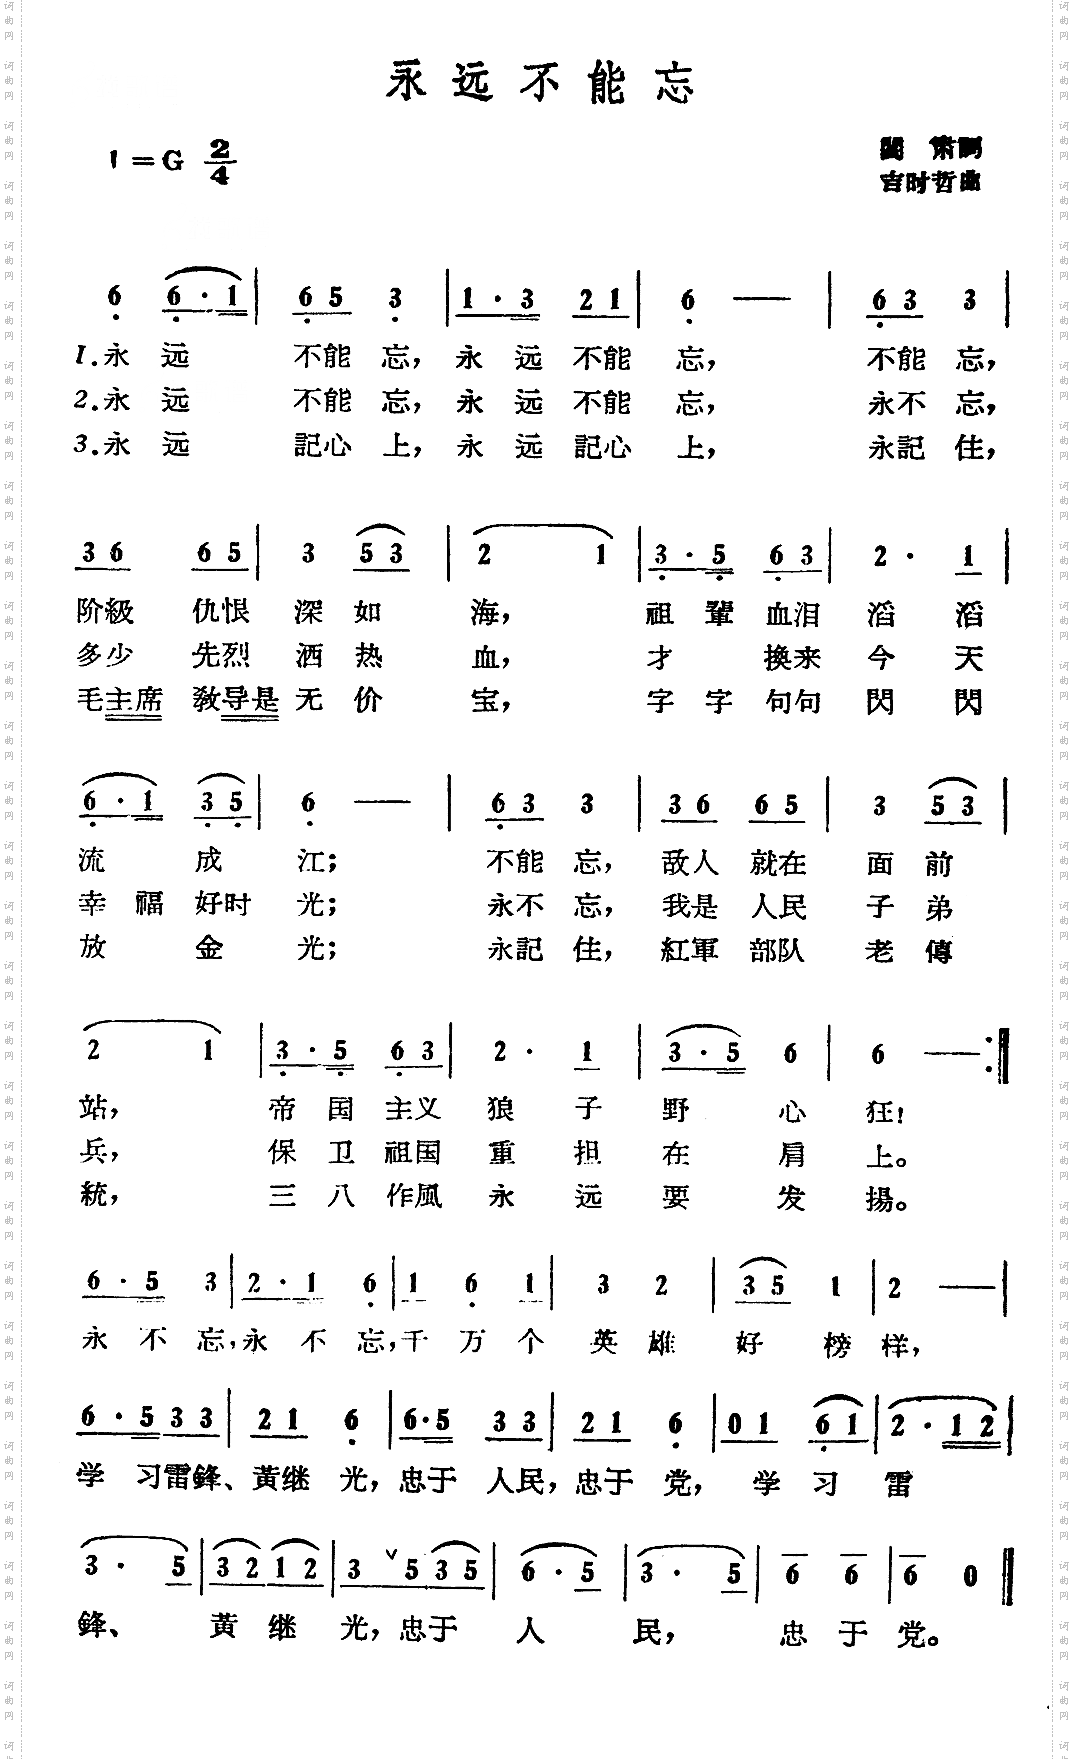 永远不能忘
1=G 2/4
阎肃词
吉时哲曲
6 6·1 | 65 3 | 1·3 21 | 6 — | 63 3 |
1.永远 不能忘，永远不能忘， 不能忘，
2.永远 不能忘，永远不能忘， 永不忘，
3.永远 記心上，永远記心上， 永記住，
36 65 | 3 53 | 2 1 | 3·5 63 | 2· 1 |
阶級 仇恨 深如 海， 祖輩血泪 滔滔
多少 先烈 洒热 血， 才换来 今天
毛主席 教导是 无价 宝， 字字句句 閃閃
6·1 35 | 6 — | 63 3 | 36 65 | 3 53 |
流成 江； 不能忘， 敌人就在 面前
幸福好时 光； 永不忘， 我是人民 子弟
放金 光； 永記住， 紅軍部队 老傳
2 1 | 3·5 63 | 2· 1 | 3·5 6 | 6 — :|
站， 帝国主义 狼子 野心 狂！
兵， 保卫祖国 重担 在肩 上。
統， 三八作風 永远 要发 揚。
6·5 3 | 2·1 6 | 1 6 1 | 3 2 | 35 1 | 2 — |
永不忘，永不忘，千万个 英雄 好榜 样，
6·5 33 | 21 6 | 6·5 33 | 21 6 | 01 61 | 2·12 |
学习雷鋒、黄继光，忠于人民，忠于党， 学习 雷
3· 5 | 32 12 | 3 ∨ 535 | 6·5 | 3· 5 | 6 6 | 6 0 ‖
鋒、 黄继 光，忠于 人 民， 忠于 党。
词曲网